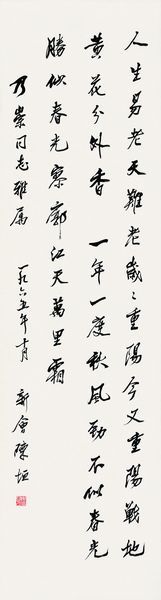 人生易老天難老歲〻重陽今又重陽戰地
黃花分外香 一年一度秋風勁不似春光
勝似春光寥廓江天萬里霜
乃崇同志雅屬
一九六五年十月 新會陳垣